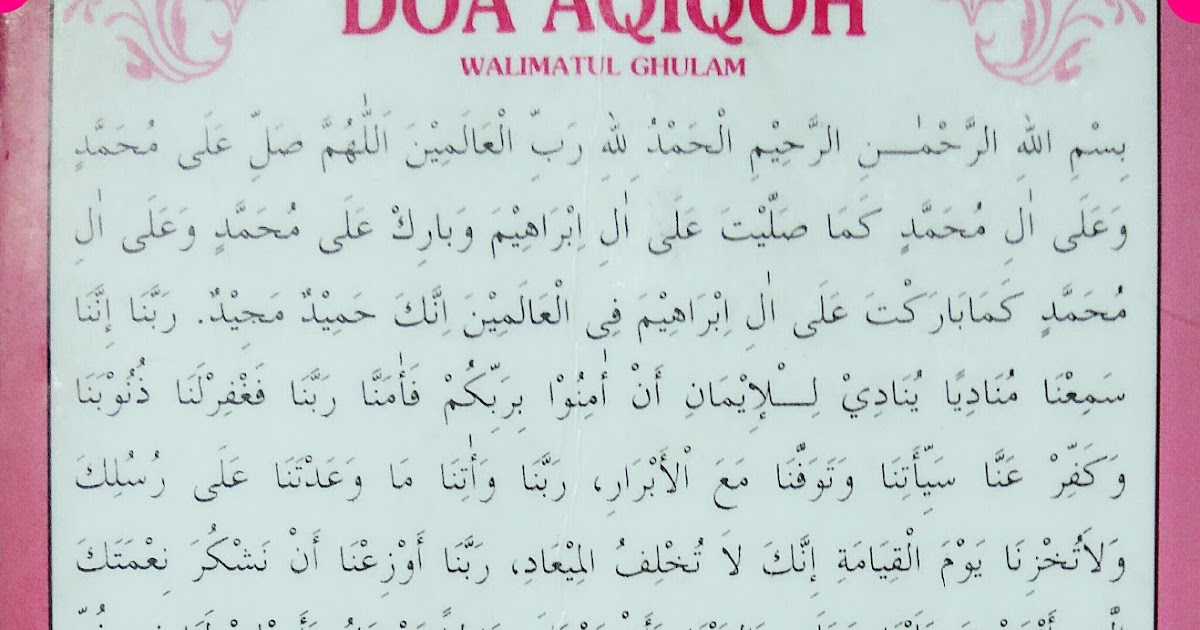 DOA AQIQOH
WALIMATUL GHULAM
بِسْمِ اللهِ الرَّحْمٰــنِ الرَّحِيْمِ الْحَمْدُ لِلّٰهِ رَبِّ الْعَالَمِيْنَ اَللّٰهُمَّ صَلِّ عَلَى مُحَمَّدٍ
وَعَلَى اٰلِ مُحَمَّدٍ كَمَا صَلَّيْتَ عَلَى اٰلِ اِبْرَاهِيْمَ وَبَارِكْ عَلَى مُحَمَّدٍ وَعَلَى اٰلِ
مُحَمَّدٍ كَمَابَارَكْتَ عَلَى اٰلِ اِبْرَاهِيْمَ فِى الْعَالَمِيْنَ اِنَّكَ حَمِيْدٌ مَجِيْدٌ. رَبَّنَا إِنَّنَا
سَمِعْنَا مُنَادِيًا يُنَادِيْ لِــلْإِيْمَانِ أَنْ أٰمِنُوْا بِرَبِّكُمْ فَأٰمَنَّا رَبَّنَا فَغْفِرْلَنَا ذُنُوْبَنَا
وَكَفِّرْ عَنَّا سَيِّأَتِنَا وَتَوَفَّنَا مَعَ اْلأَبْرَارِ، رَبَّنَا وَأٰتِنَا مَا وَعَدْتَنَا عَلَى رُسُلِكَ
وَلاَتُخْزِنَا يَوْمَ الْقِيَامَةِ إِنَّكَ لاَ تُخْلِفُ المِيْعَادِ، رَبَّنَا أَوْزِعْنَا أَنْ نَشْكُرَ نِعْمَتَكَ